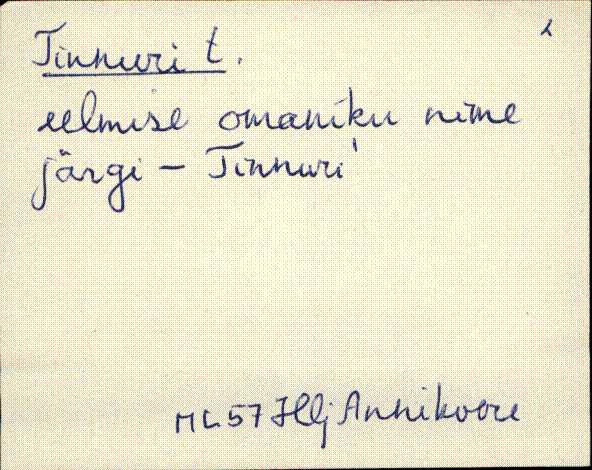 Tinnuri t.
eelmise omaniku nime
järgi – Tinnuri
Annikoore